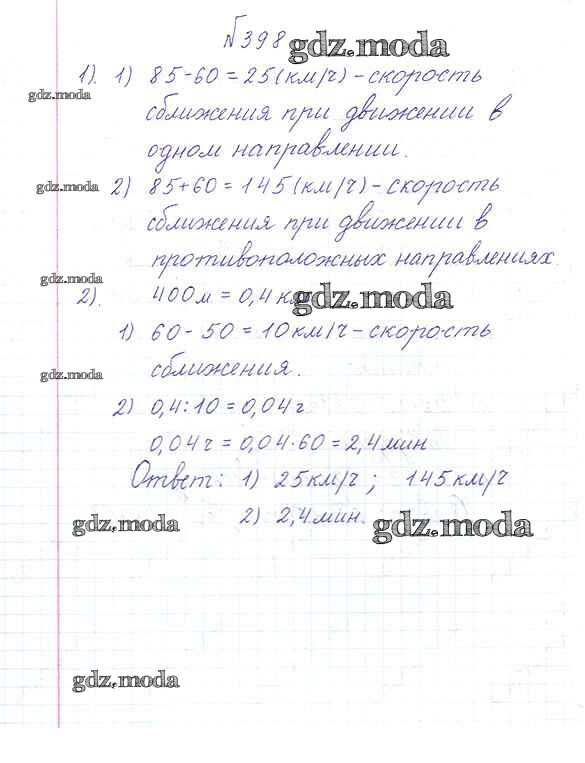 №398 gdz.moda
1). 1) 85-60=25(км/ч)-скорость
gdz.moda
сближения при движении в
одном направлении.
gdz.moda 2) 85+60=145(км/ч)-скорость
сближения при движении в
противоположных направлениях.
gdz.moda
2). 400м=0,4км gdz.moda
1) 60-50=10км/ч-скорость
gdz.moda сближения.
2) 0,4:10=0,04ч
0,04ч=0,04·60=2,4мин
Ответ: 1) 25км/ч; 145км/ч
gdz.moda 2) 2,4мин. gdz.moda
gdz.moda